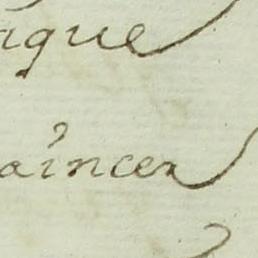 aque
aincer